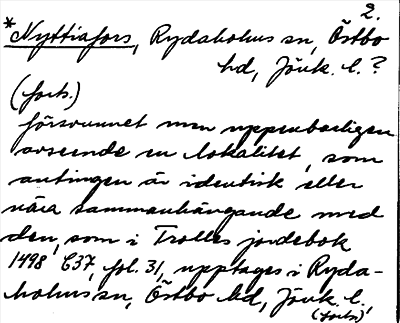 2.
*Nyttiafors, Rydaholms sn, Östbo
hd, Jönk. l.?
(forts.)
försvunnet men uppenbarligen
avseende en lokalitet, som
antingen är identisk eller
nära sammanhängande med
den, som i Trolles jordebok
1498 C37, fol. 31, upptages i Ryda-
holms sn, Östbo hd, Jönk. l.,
(forts.)